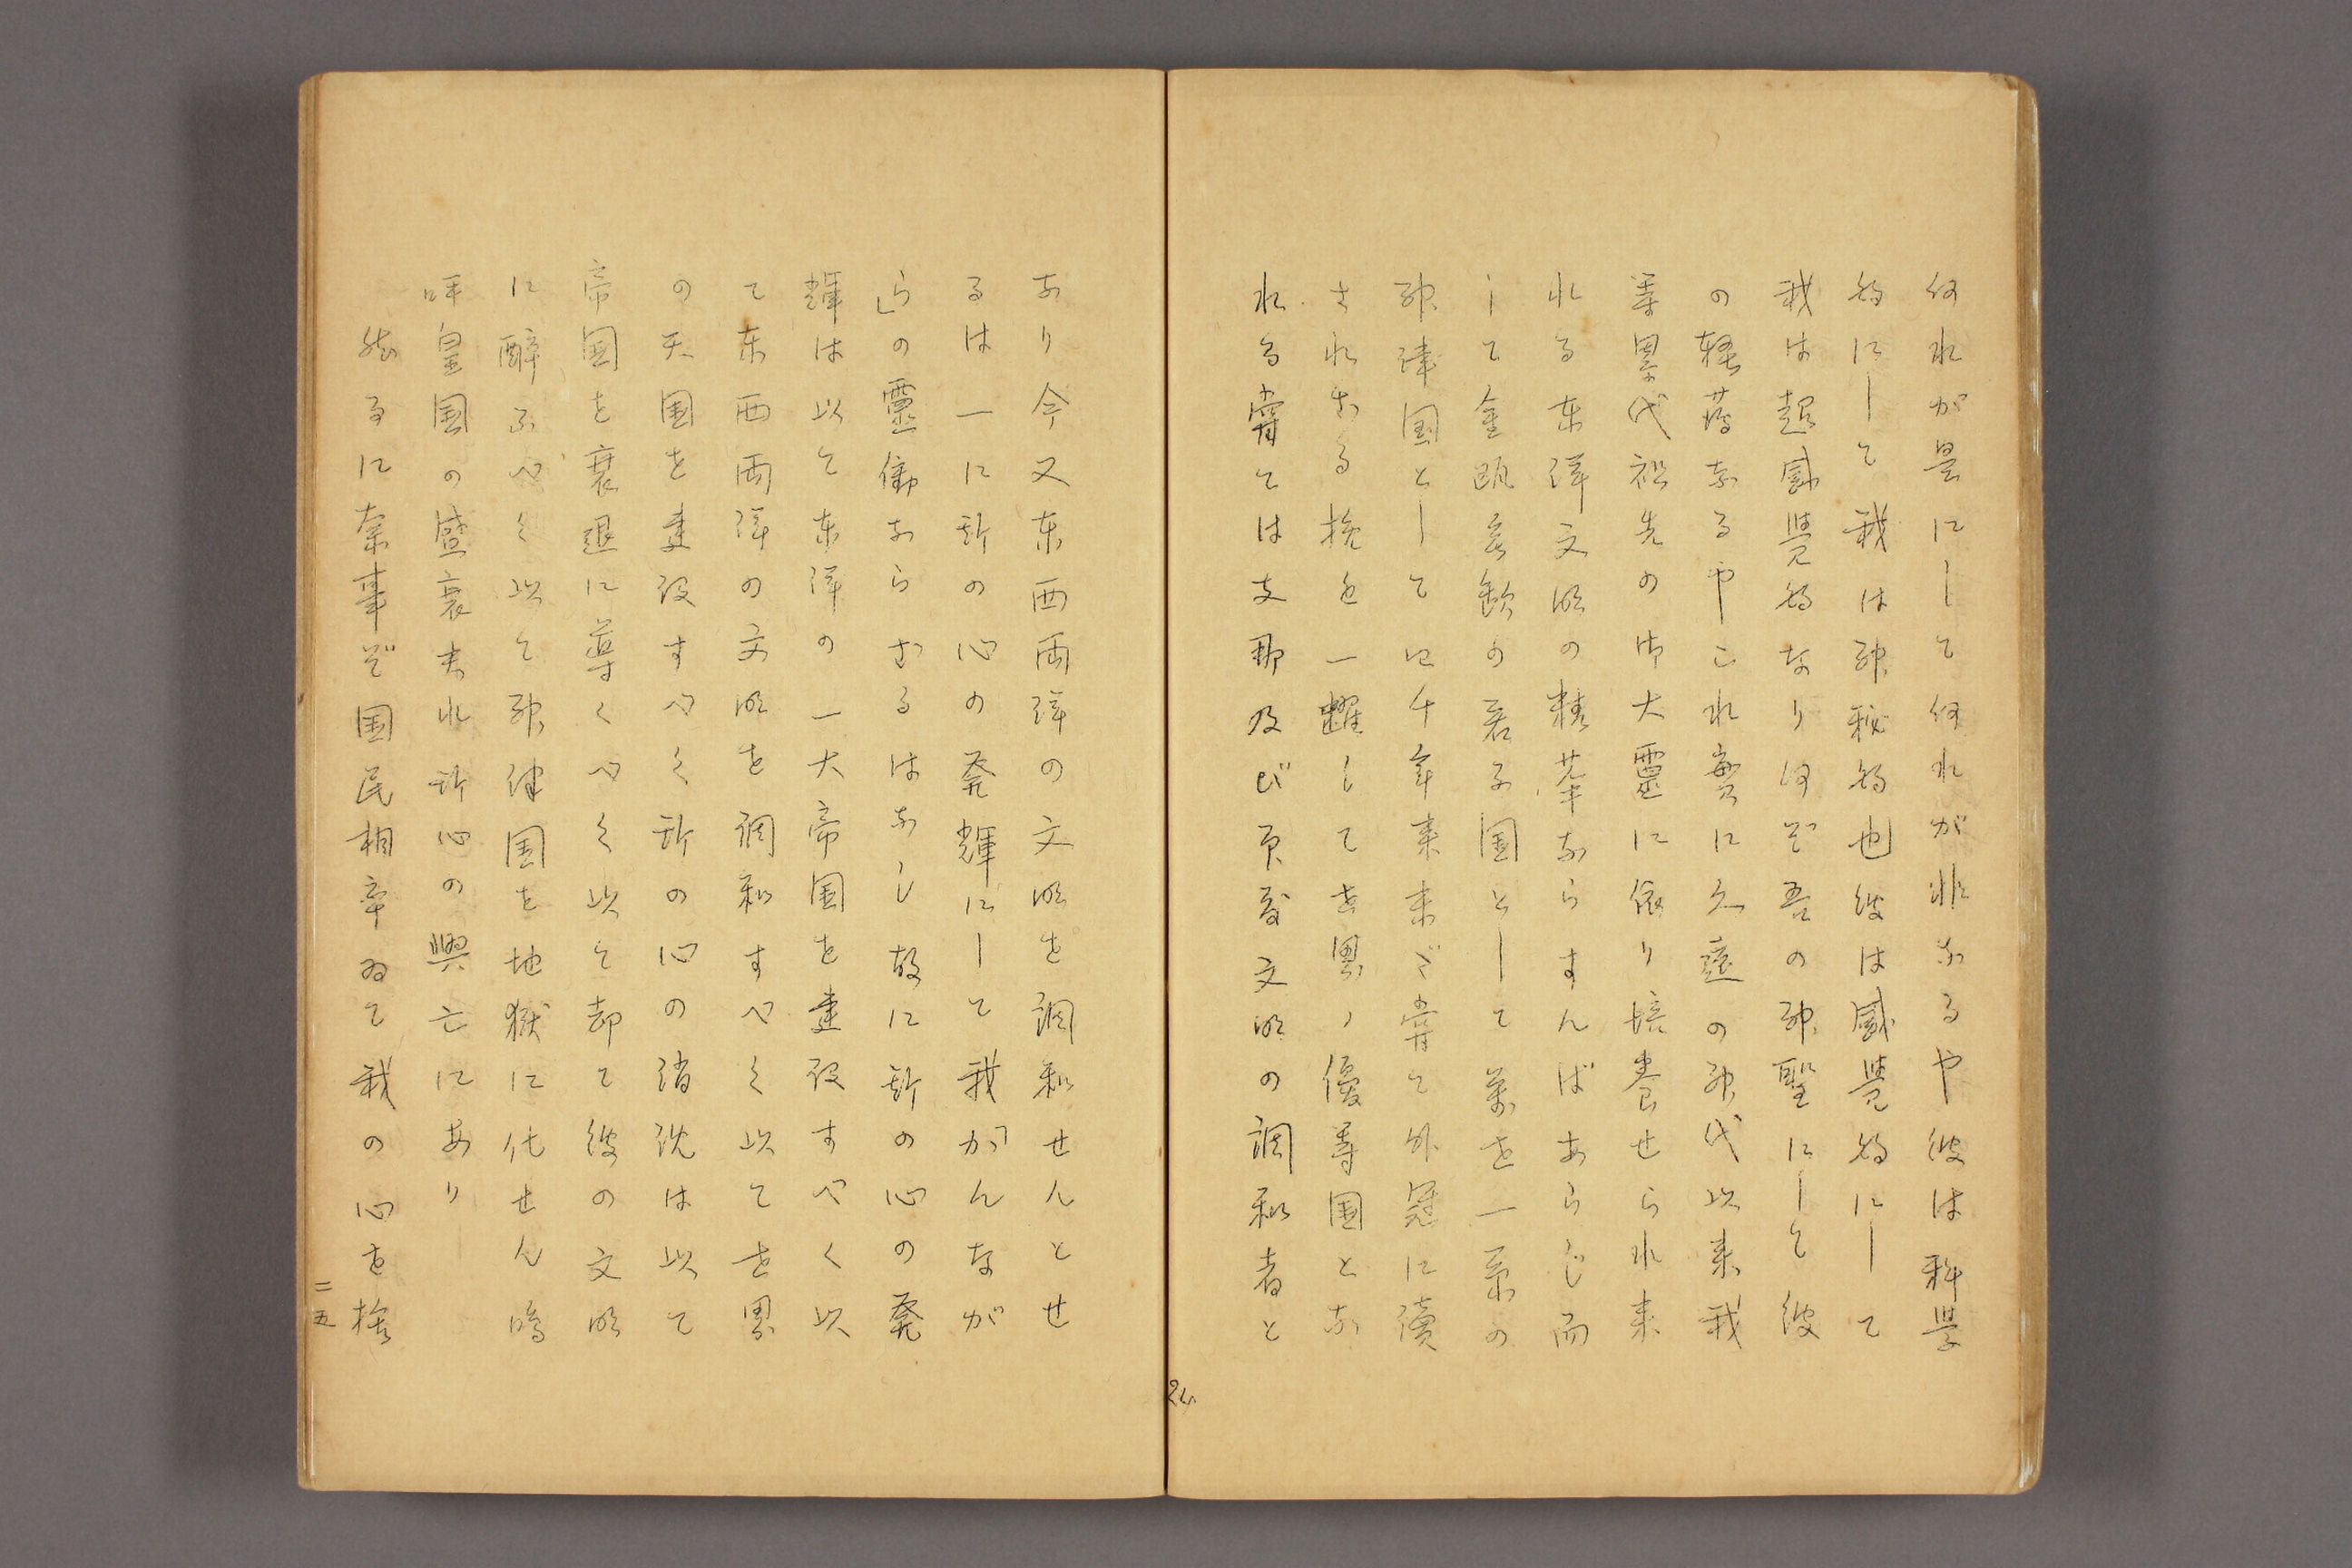 何れが是にして何れが非なるや彼は科学
的にして我は神秘的也彼は感覚的にして
我は超感覚的なり何ぞ吾の神聖にして彼
の軽薄なるやこれ実に久遠の神代以来我
等累代祖先の御大靈に依り培養せられ来
れる東洋文明の精華ならずんばあらじ而
して金甌無欠の君子国として萬世一系の
神津国として四千年来未だ嘗て外冠に瀆
されざる 一躍して世界ノ優等国とな
れる嘗ては支那及び印度文明の調和者と
なり今又東西両洋の文明を調和せんとせ
るは一に斯の心の発輝にして我が「かんなが
ら」の靈働ならざるはなし故に斯の心の発
輝は以て東洋の一大帝国を建設すべく以
て東西両洋の文明を調和すべく以て世界
の天国を建設すべく斯の心の消沈は以て
帝国を衰退に導くべく以て却て彼の文明
に酔ふべく以て神津国を地獄に化せん嗚
呼皇国の盛衰夫れ斯心の興亡にあり
然るに奈事ぞ国民相率ゐて我の心を捨
二五
24